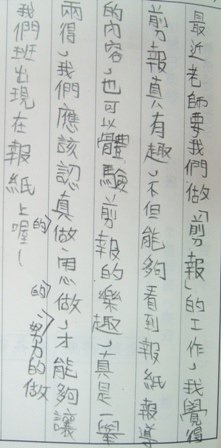 最近老師要我們做「剪報」的工作，我覺得
剪報真有趣，不但能夠看到報紙報導
的內容，也可以體驗剪報的樂趣，真是一舉
兩得，我們應該認真的做、用心的做、努力的做，才能夠讓
我們班出現在報紙上喔！